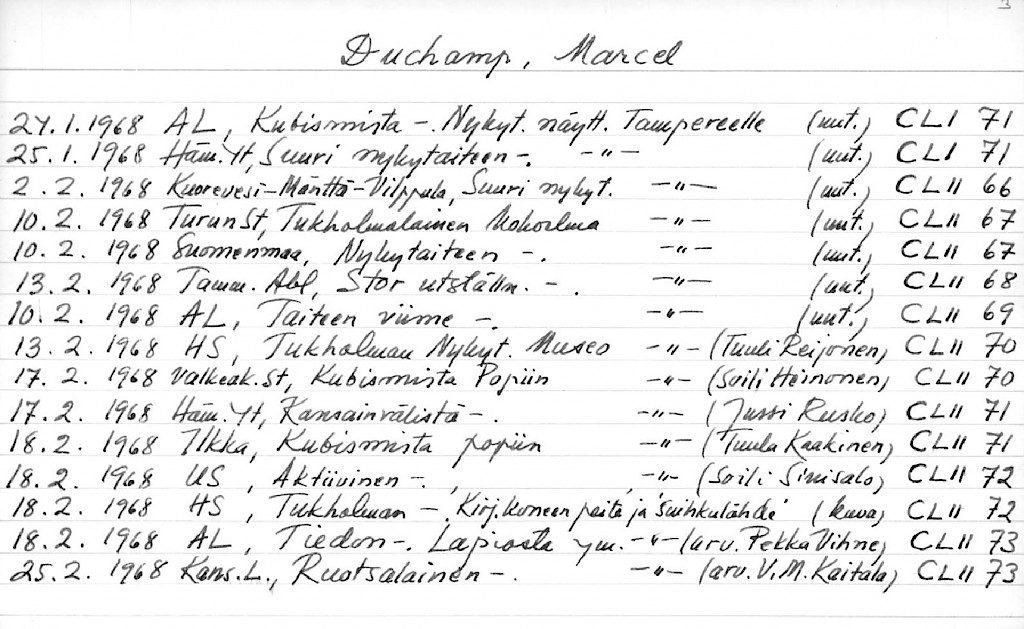 3
Duchamp, Marcel
24.1.1968 AL, Kubismista -. Nykyt. näytt. Tampereelle (uut.) CLI 71
25.1.1968 Häm.Yt, Suuri nykytaiteen -. -"- (uut.) CLI 71
2.2.1968 Kuorevesi-Mänttä-Vilppula, Suuri nykyt. -"- (uut.) CLII 66
10.2.1968 TurunSt, Tukholmalainen kokoelma -"- (uut.) CLII 67
10.2.1968 Suomenmaa, Nykytaiteen -. -"- (uut.) CLII 67
13.2.1968 Tamm. Abl, Stor utställn. -. -"- (uut.) CLII 68
10.2.1968 AL, Taiteen viime -. -"- (uut.) CLII 69
13.2.1968 HS, Tukholman Nykyt. Museo -"- (Tuuli Reijonen) CLII 70
17.2.1968 Valkeak.St, Kubismista Popiin -"- (Soili Heinonen) CLII 70
17.2.1968 Häm.Yt, Kansainvälistä -. -"- (Jussi Rusko) CLII 71
18.2.1968 Ilkka, Kubismista popiin -"- (Tuula Kaakinen) CLII 71
18.2.1968 US, Aktiivinen -. -"- (Soili Sinisalo) CLII 72
18.2.1968 HS, Tukholman -. Kirj.koneen peite ja 'Suihkulähde' (kuva) CLII 72
18.2.1968 AL, Tiedon -. Lapiosta ym. -"- (arv. Pekka Vihne) CLII 73
25.2.1968 Kans.L., Ruotsalainen -. -"- (arv. V.M. Kaitala) CLII 73